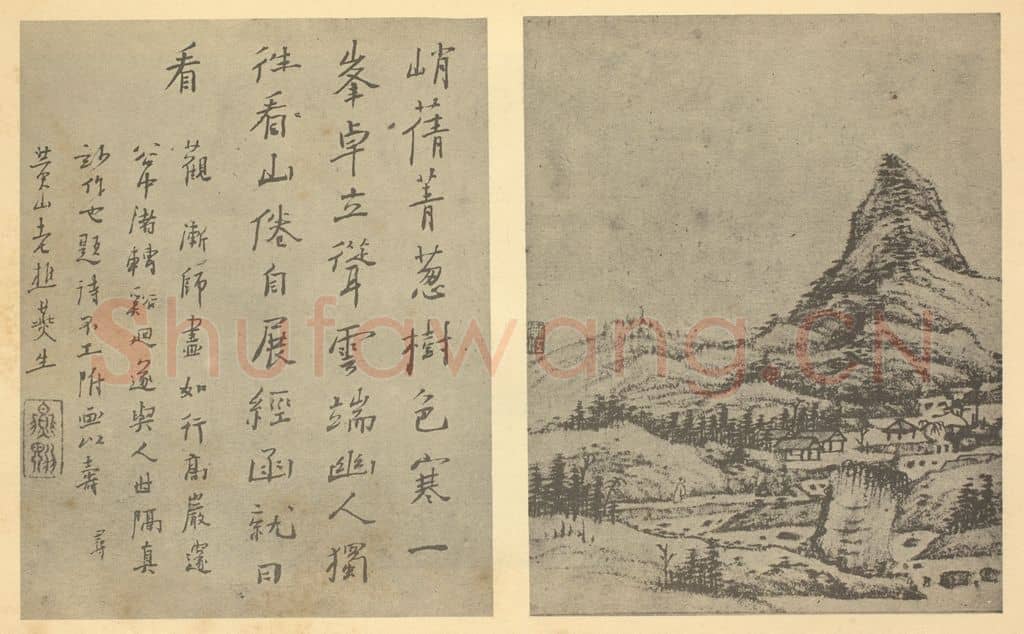 峭蒨菁葱樹色寒一
峯卓立聳雲端幽人獨
往看山倦自展經函就日
看
觀漸師畫如行高巖邃
谷中渚轉谿迴遂與人世隔真
妙作也題詩不工附畫以壽
尋
黃山老樵燕生
Shufawang.CN